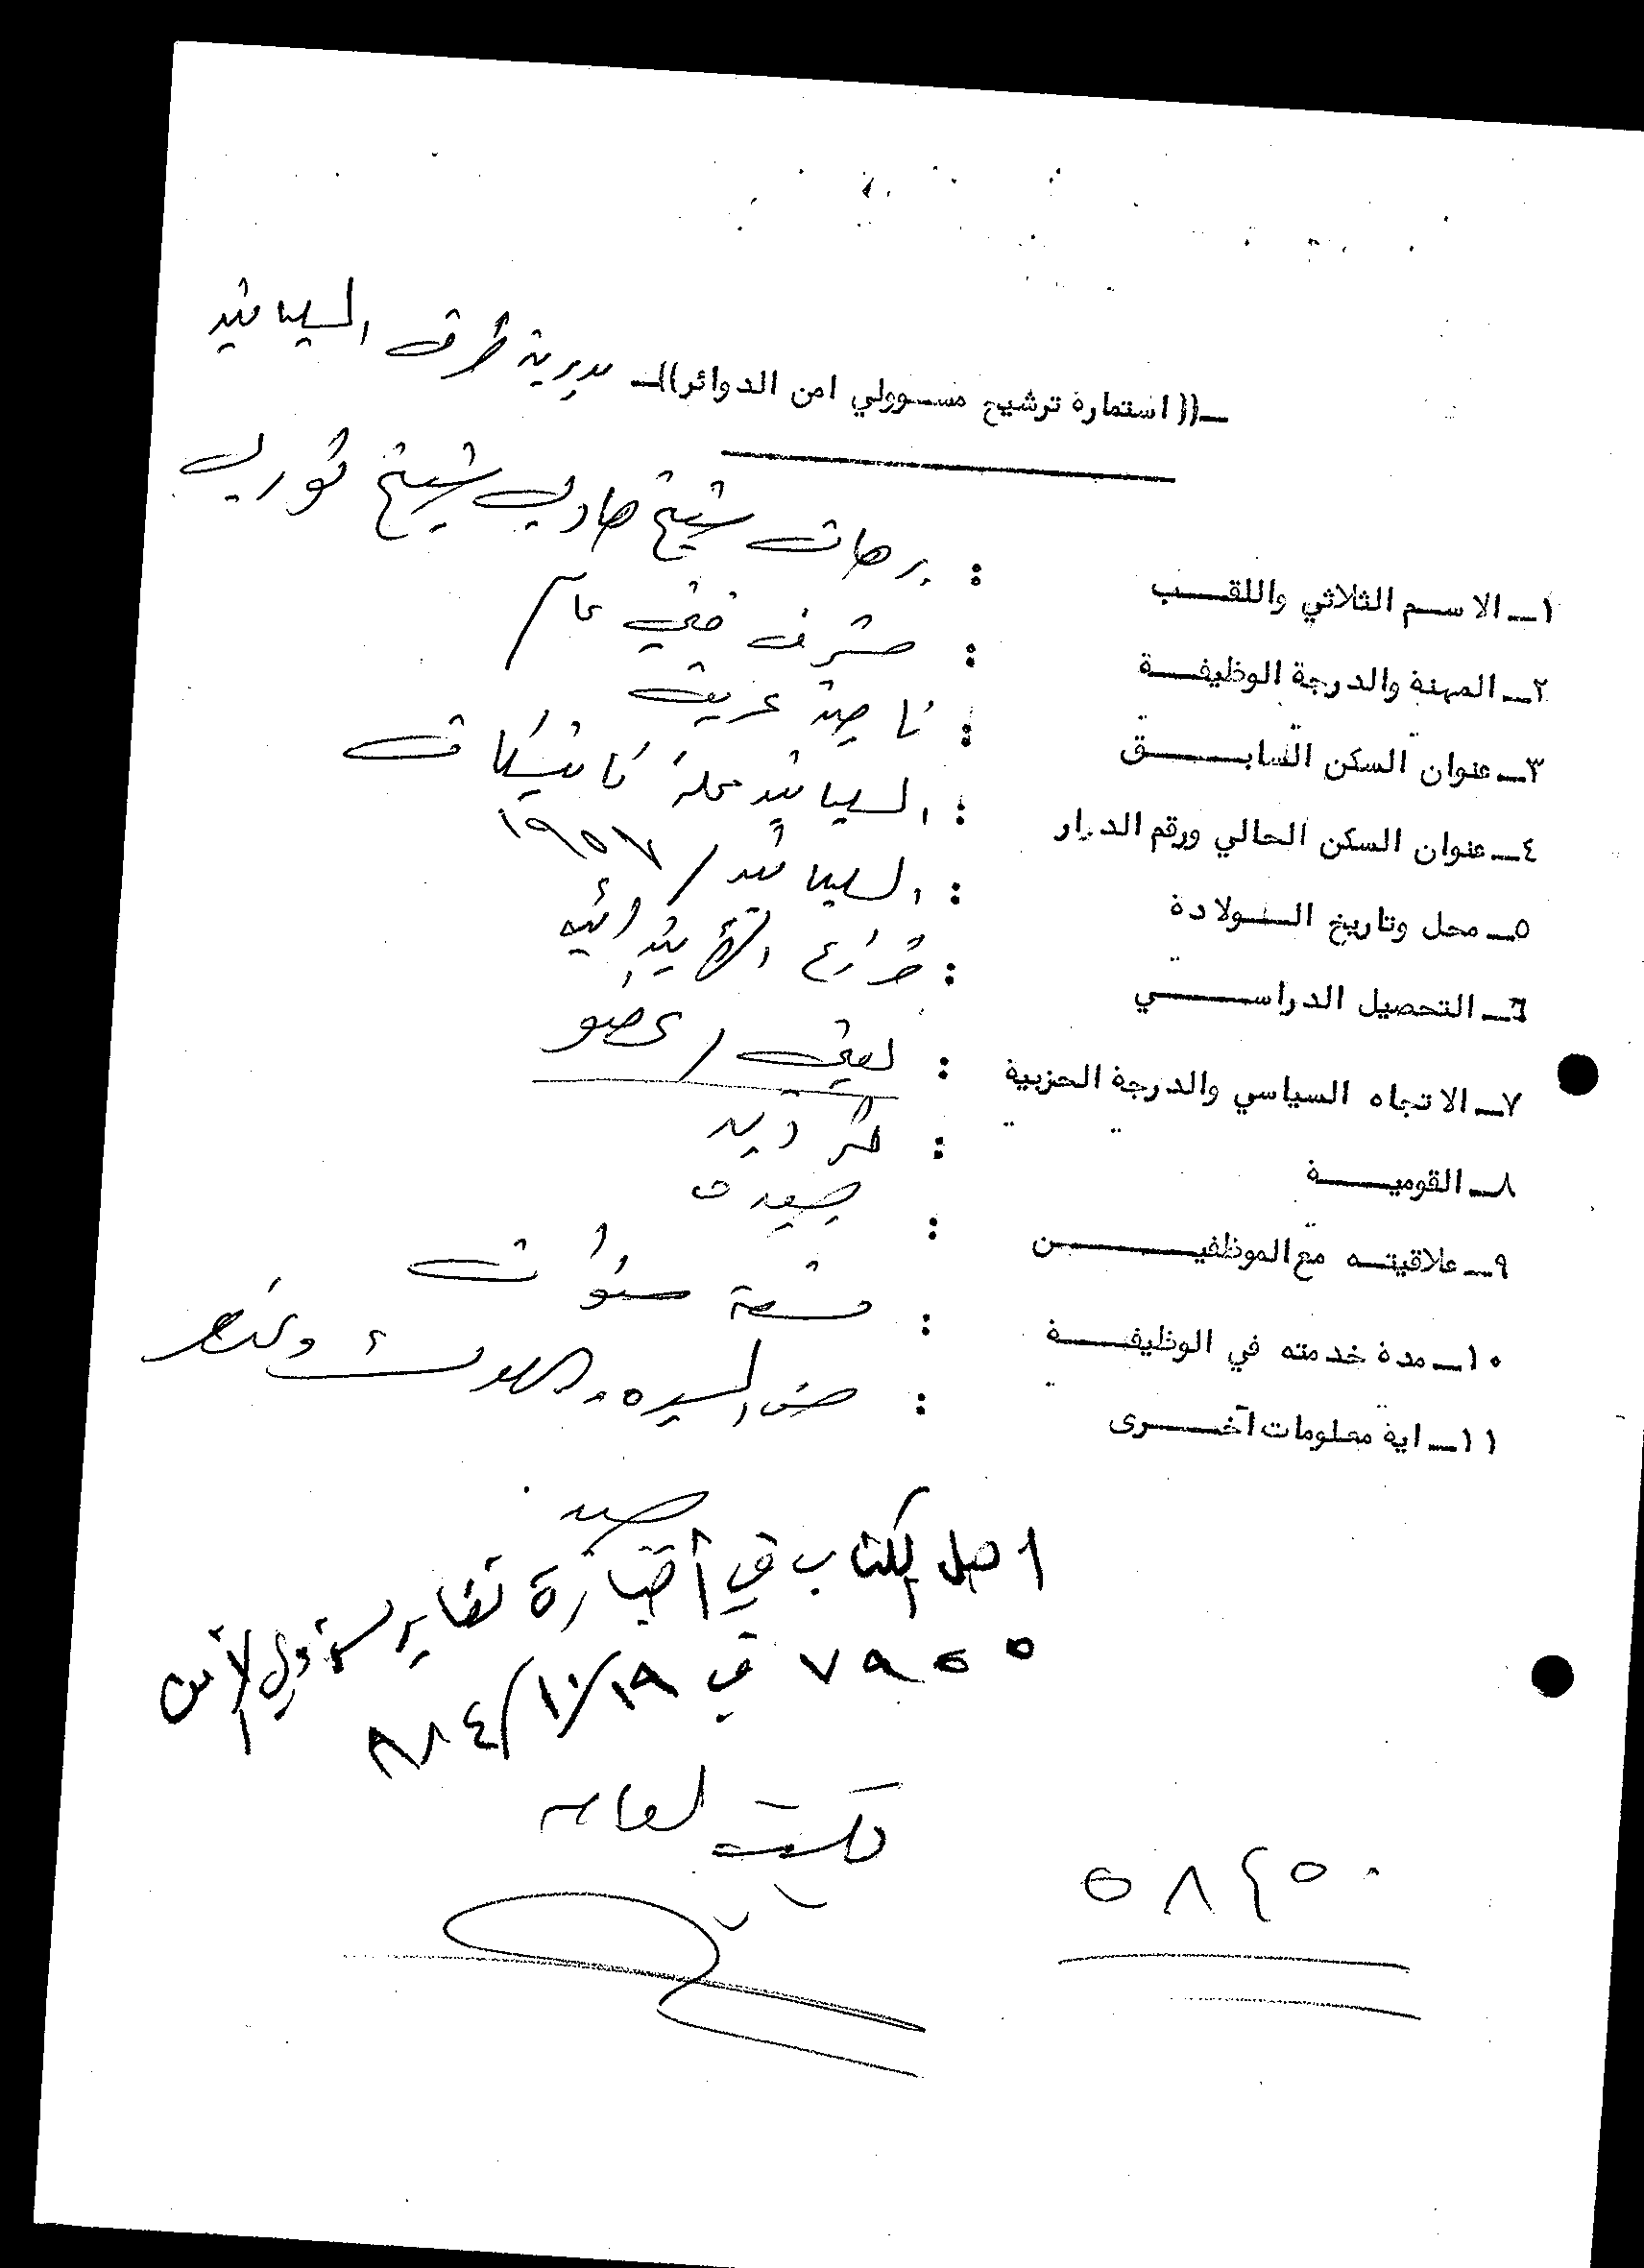 ـ((استمارة ترشيح مسوولي امن الدوائر))ـ مديرية طرق السليمانية
١ـ الاسم الثلاثي واللقب : برهان شيخ هادي شيخ نوري
٢ـ المهنة والدرجة الوظيفة : مشرف فني عام
٣ـ عنوان السكن السابق : ناحية عربت
٤ـ عنوان السكن الحالي ورقم الدار : السليمانية محلة كانيسكان
٥ـ محل وتاريخ الولادة : السليمانية / ١٩٥٧
٦ـ التحصيل الدراسي : الابتدائية
٧ـ الاتجاه السياسي والدرجة الحزبية : بعثي / عضو
٨ـ القومية : كردية
٩ـ علاقيته مع الموظفين : جيدة
١٠ـ مدة خدمته في الوظيفة : تسعة سنوات
١١ـ اية معلومات آخرى : حسن السيرة والسلوك
اصل الكتاب في أضبارة تقارير مسؤولي الأمن
٧٩٥٥ في ١٩/١٠/٩٨٤
٥٨٤٥٠